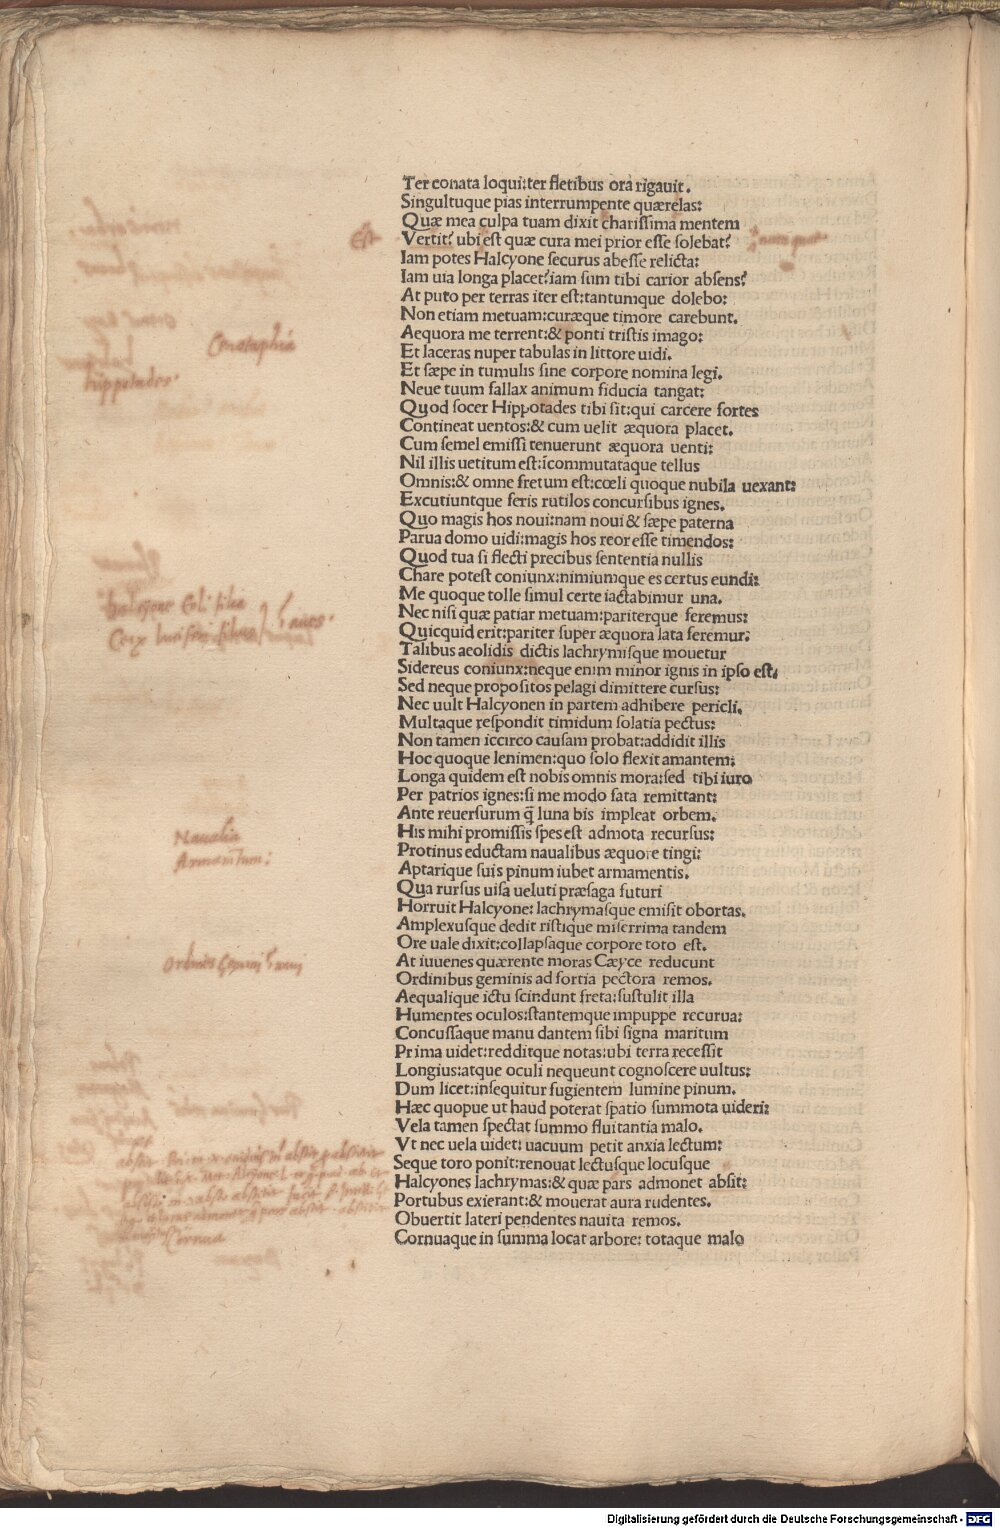 Ter conata loqui:ter fletibus ora rigauit.
Singultuque pias interrumpente quærelas:
Quæ mea culpa tuam dixit chariſſima mentem
Eſt
Vertit? ubi eſt quæ cura mei prior eſſe ſolebat?
Iam potes Halcyone ſecurus abeſſe relicta:
Iam uia longa placet?iam ſum tibi carior abſens?
At puto per terras iter eſt:tantumque dolebo:
Non etiam metuam:curæque timore carebunt.
Aequora me terrent:& ponti triſtis imago:
Et laceras nuper tabulas in littore uidi.
Et ſæpe in tumulis ſine corpore nomina legi.
hippotades.
Neue tuum fallax animum fiducia tangat:
Quod ſocer Hippotades tibi ſit:qui carcere fortes
Contineat uentos:& cum uelit æquora placet.
Cum ſemel emiſſi tenuerunt æquora uenti:
Nil illis uetitum eſt:īcommutataque tellus
Omnis:& omne fretum eſt:cœli quoque nubila uexant:
Excutiuntque feris rutilos concurſibus ignes.
Quo magis hos noui:nam noui & ſæpe paterna
Parua domo uidi:magis hos reor eſſe timendos:
Quod tua ſi flecti precibus ſententia nullis
Chare poteſt coniunx:nimiumque es certus eundi:
Me quoque tolle ſimul certe iactabimur una.
halcyone Eoli filia
Nec niſi quæ patiar metuam:pariterque feremus:
Quicquid erit:pariter ſuper æquora lata feremur:
Talibus aeolidis dictis lachrymiſque mouetur
Sidereus coniunx:neque enim minor ignis in ipſo eſt.
Sed neque propoſitos pelagi dimittere curſus:
Nec uult Halcyonen in partem adhibere pericli.
Multaque reſpondit timidum ſolatia pectus:
Non tamen iccirco cauſam probat:addidit illis
Hoc quoque lenimen:quo ſolo flexit amantem:
Longa quidem eſt nobis omnis mora:ſed tibi iuro
Per patrios ignes:ſi me modo fata remittant:
Ante reuerſurum q̄ luna bis impleat orbem.
Naualia
His mihi promiſſis ſpes eſt admota recurſus:
Armamentum:
Protinus eductam naualibus æquore tingi:
Aptarique ſuis pinum iubet armamentis.
Qua rurſus uiſa ueluti præſaga futuri
Horruit Halcyone: lachrymaſque emiſit obortas.
Amplexuſque dedit riſtique miſerrima tandem
Ore uale dixit:collapſaque corpore toto eſt.
At iuuenes quærente moras Cæyce reducunt
Ordinibus geminis ad fortia pectora remos.
Aequalique ictu ſcindunt freta:ſuſtulit illa
Humentes oculos:ſtantemque impuppe recurua:
Concuſſaque manu dantem ſibi ſigna maritum
Prima uidet:redditque notas:ubi terra receſſit
Longius:atque oculi nequeunt cognoſcere uultus:
Dum licet:inſequitur fugientem lumine pinum.
Hæc quopue ut haud poterat ſpatio ſummota uideri:
Vela tamen ſpectat ſummo fluitantia malo.
Vt nec uela uidet: uacuum petit anxia lectum:
Seque toro ponit:renouat lectuſque locuſque
Halcyones lachrymas:& quæ pars admonet abſit:
Portubus exierant:& mouerat aura rudentes.
Obuertit lateri pendentes nauita remos.
Cornua
Cornuaque in ſumma locat arbore: totaque malo
Digitalisierung gefördert durch die Deutsche Forschungsgemeinschaft - DFG